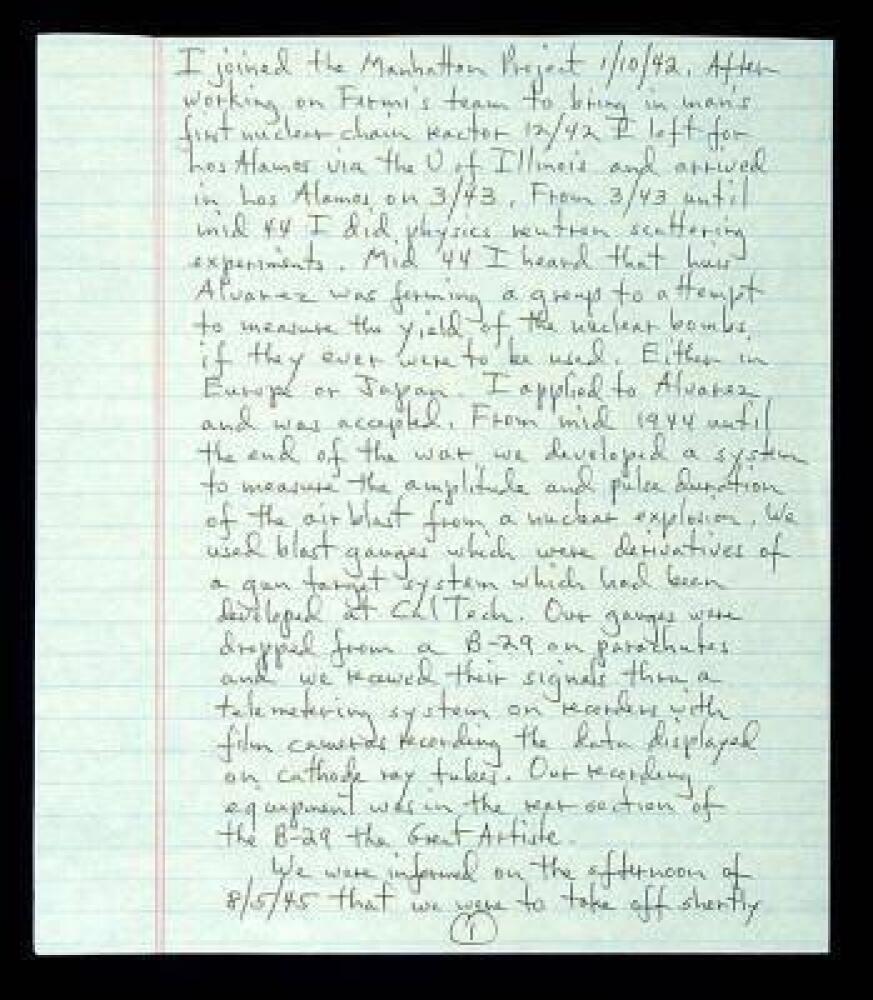 I joined the Manhattan Project 1/10/42. After
working on Fermi's team to bring in man's
first nuclear chain reactor 12/42 I left for
Los Alamos via the U of Illinois and arrived
in Los Alamos on 3/43. From 3/43 until
mid 44 I did physics neutron scattering
experiments. Mid '44 I heard that Luis
Alvarez was forming a group to attempt
to measure the yield of the nuclear bombs
if they ever were to be used. Either in
Europe or Japan. I applied to Alvarez
and was accepted. From mid 1944 until
the end of the war we developed a system
to measure the amplitude and pulse duration
of the air blast from a nuclear explosion. We
used blast gauges which were derivatives of
a gun target system which had been
developed at CalTech. Our gauges were
dropped from a B-29 on parachutes
and we received their signals thru a
telemetering system on recorders with
film cameras recording the data displayed
on cathode ray tubes. Our recording
equipment was in the rear section of
the B-29 the Great Artiste.
We were informed on the afternoon of
8/5/45 that we were to take off shortly
1